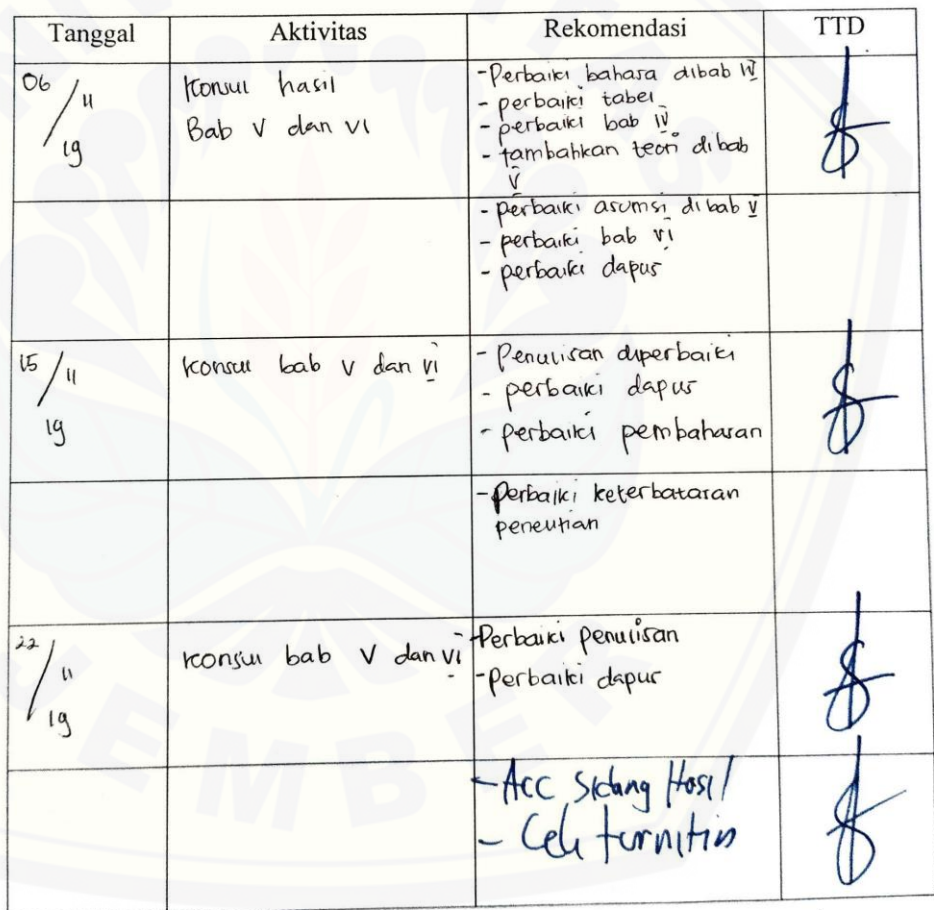 Tanggal Aktivitas Rekomendasi TTD
06/11/19 Konsul hasil Bab V dan VI
- Perbaiki bahasa dibab IV
- perbaiki tabel
- perbaiki bab IV
- tambahkan teori dibab
V
- perbaiki asumsi dibab V
- perbaiki bab VI
- perbaiki dapus
15/11/19 Konsul bab V dan VI
- Penulisan diperbaiki
- perbaiki dapus
- perbaiki pembahasan
- Perbaiki keterbatasan
penelitian
22/11/19 Konsul bab V dan VI
- Perbaiki penulisan
- Perbaiki dapus
- Acc Sidang Hasil
- Cek turnitin
JEMBER